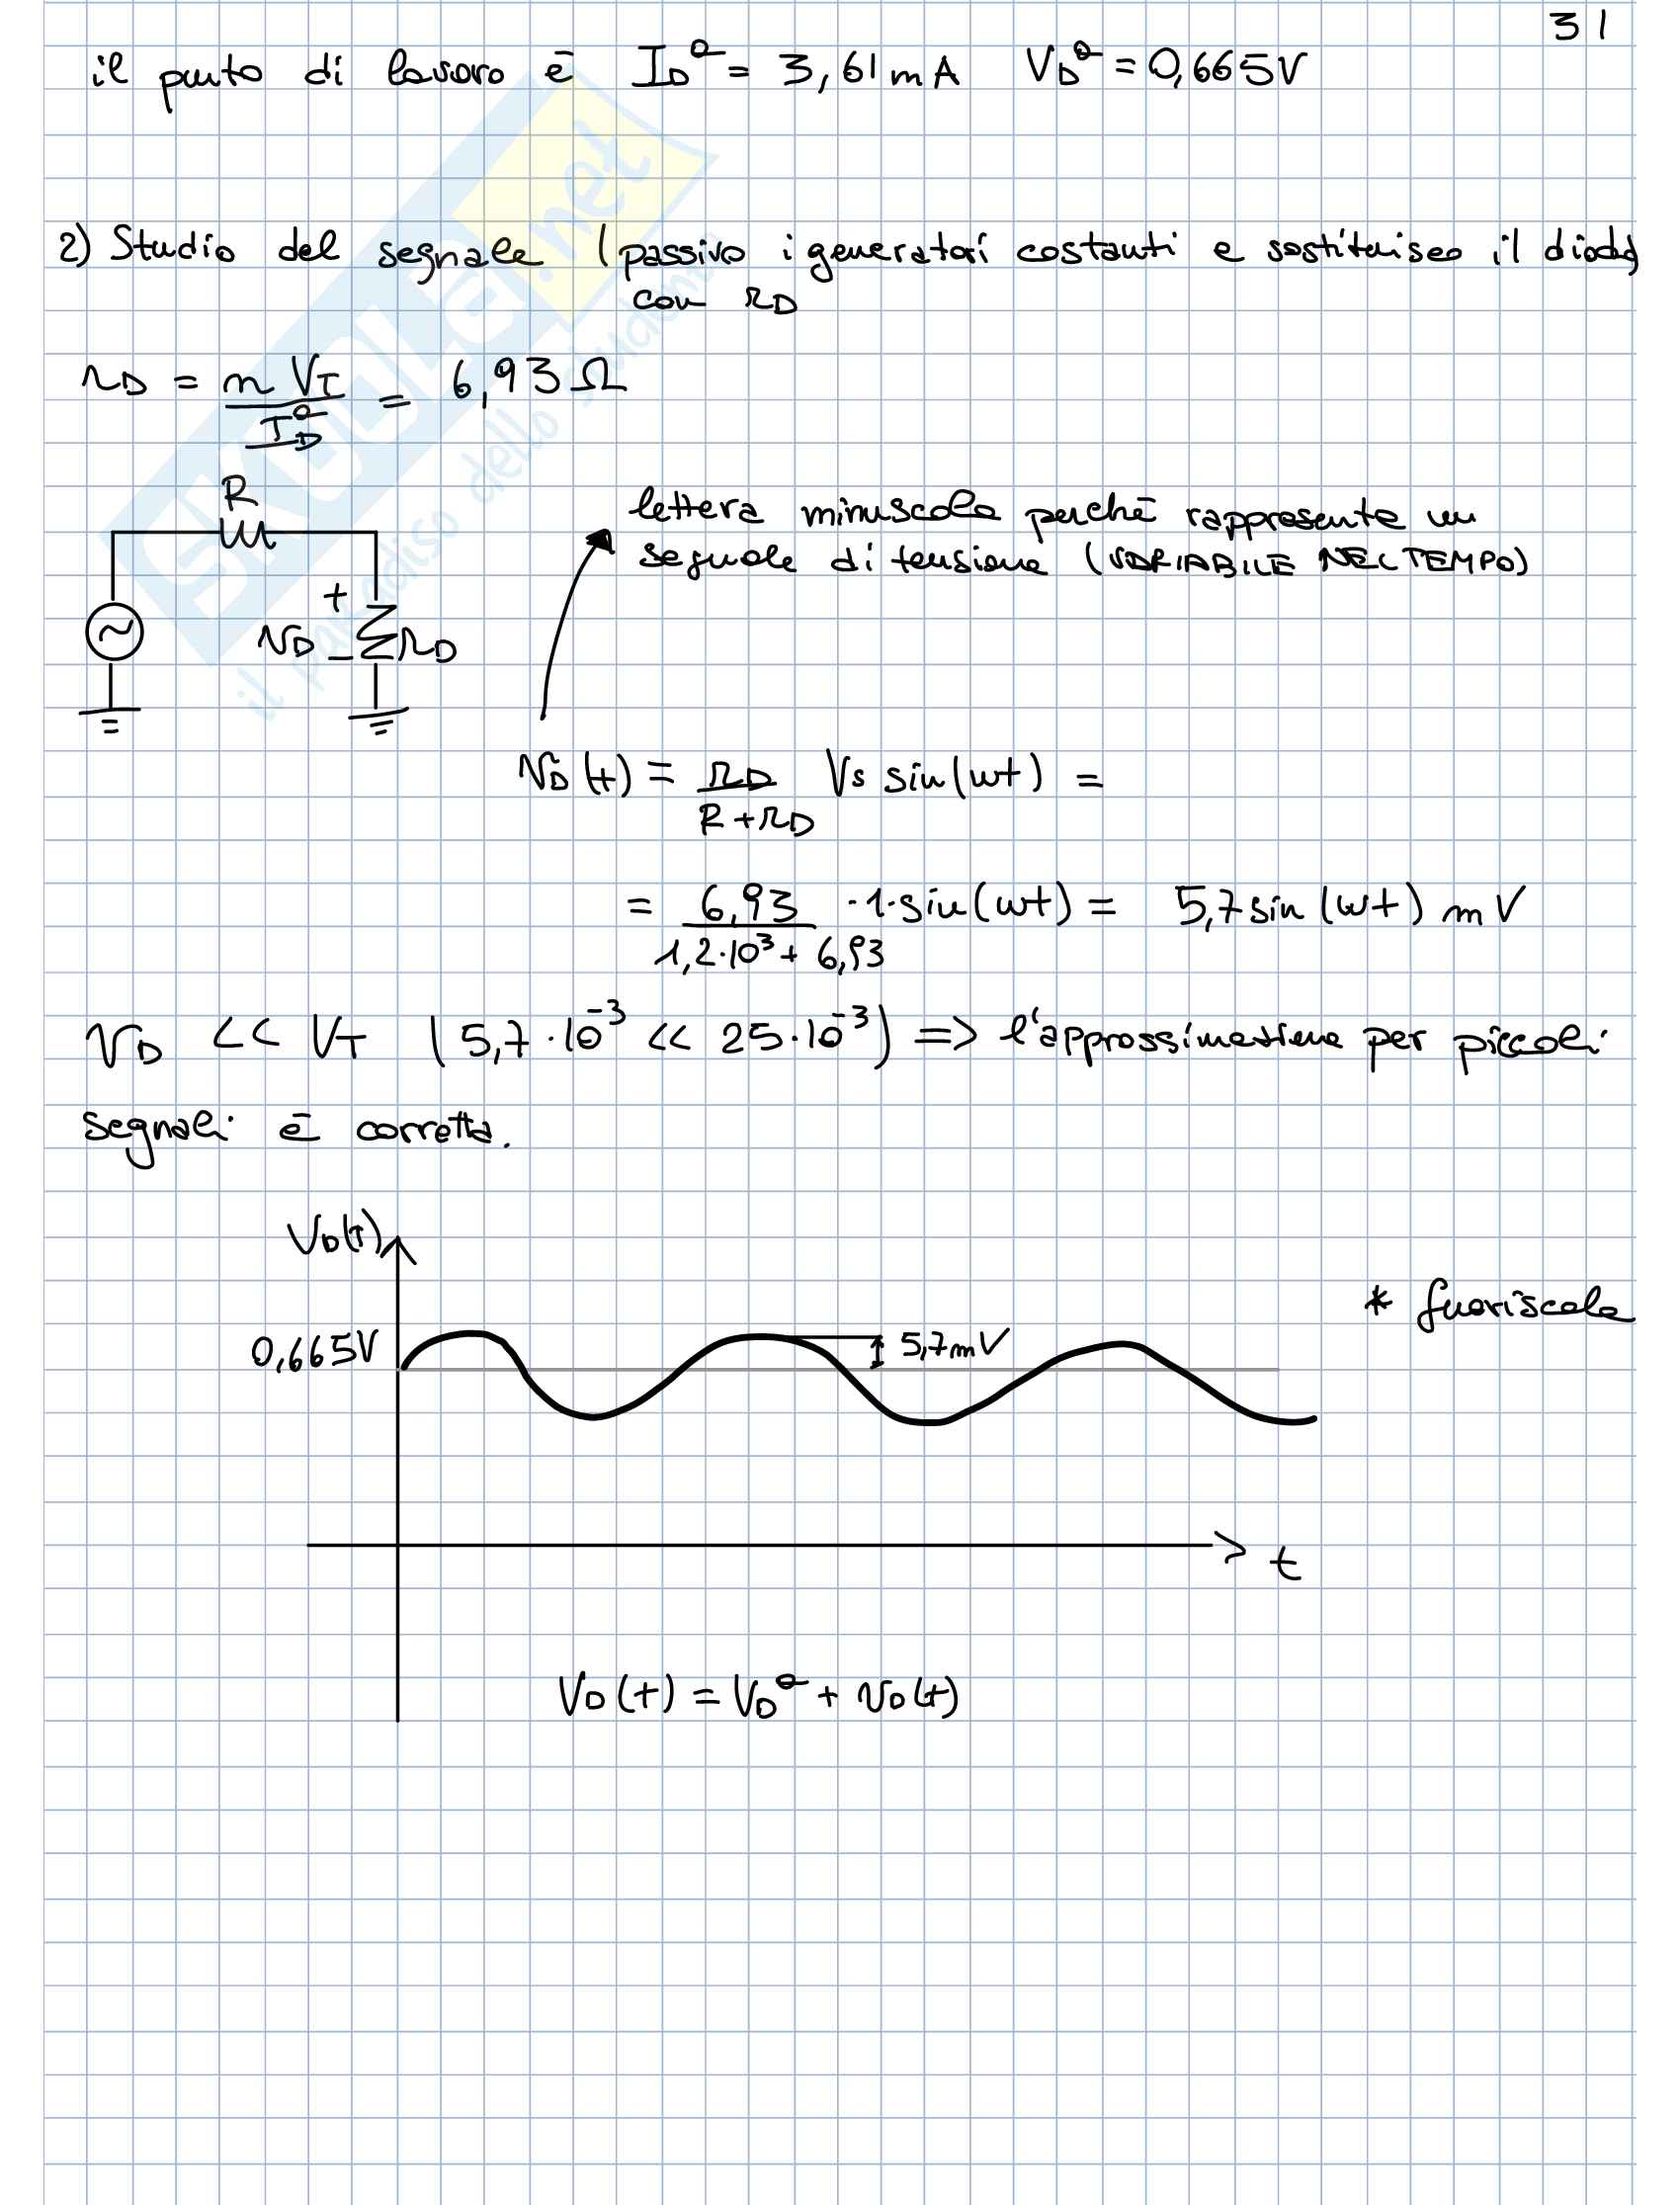 31
il punto di lavoro è I_D^Q = 3,61 mA V_D^Q = 0,665V
2) Studio del segnale (passivo i generatori costanti e sostituisco il diodo)
con r_D
r_D = n V_T / I_D^Q = 6,93 Ω
R
lettera minuscola perchè rappresenta un
segnale di tensione (VARIABILE NEL TEMPO)
+
v_D r_D
-
v_D(t) = r_D / (R + r_D) Vs sin(wt) =
= 6,93 / (1,2·10³ + 6,93) ·1·sin(wt) = 5,7 sin(wt) mV
v_D << V_T (5,7·10⁻³ << 25·10⁻³) => l'approssimazione per piccoli
segnali è corretta.
V_D(t)
* fuoriscala
0,665V
5,7mV
t
V_D(t) = V_D^Q + v_D(t)
SKUOLA.net
il paradiso dello studente